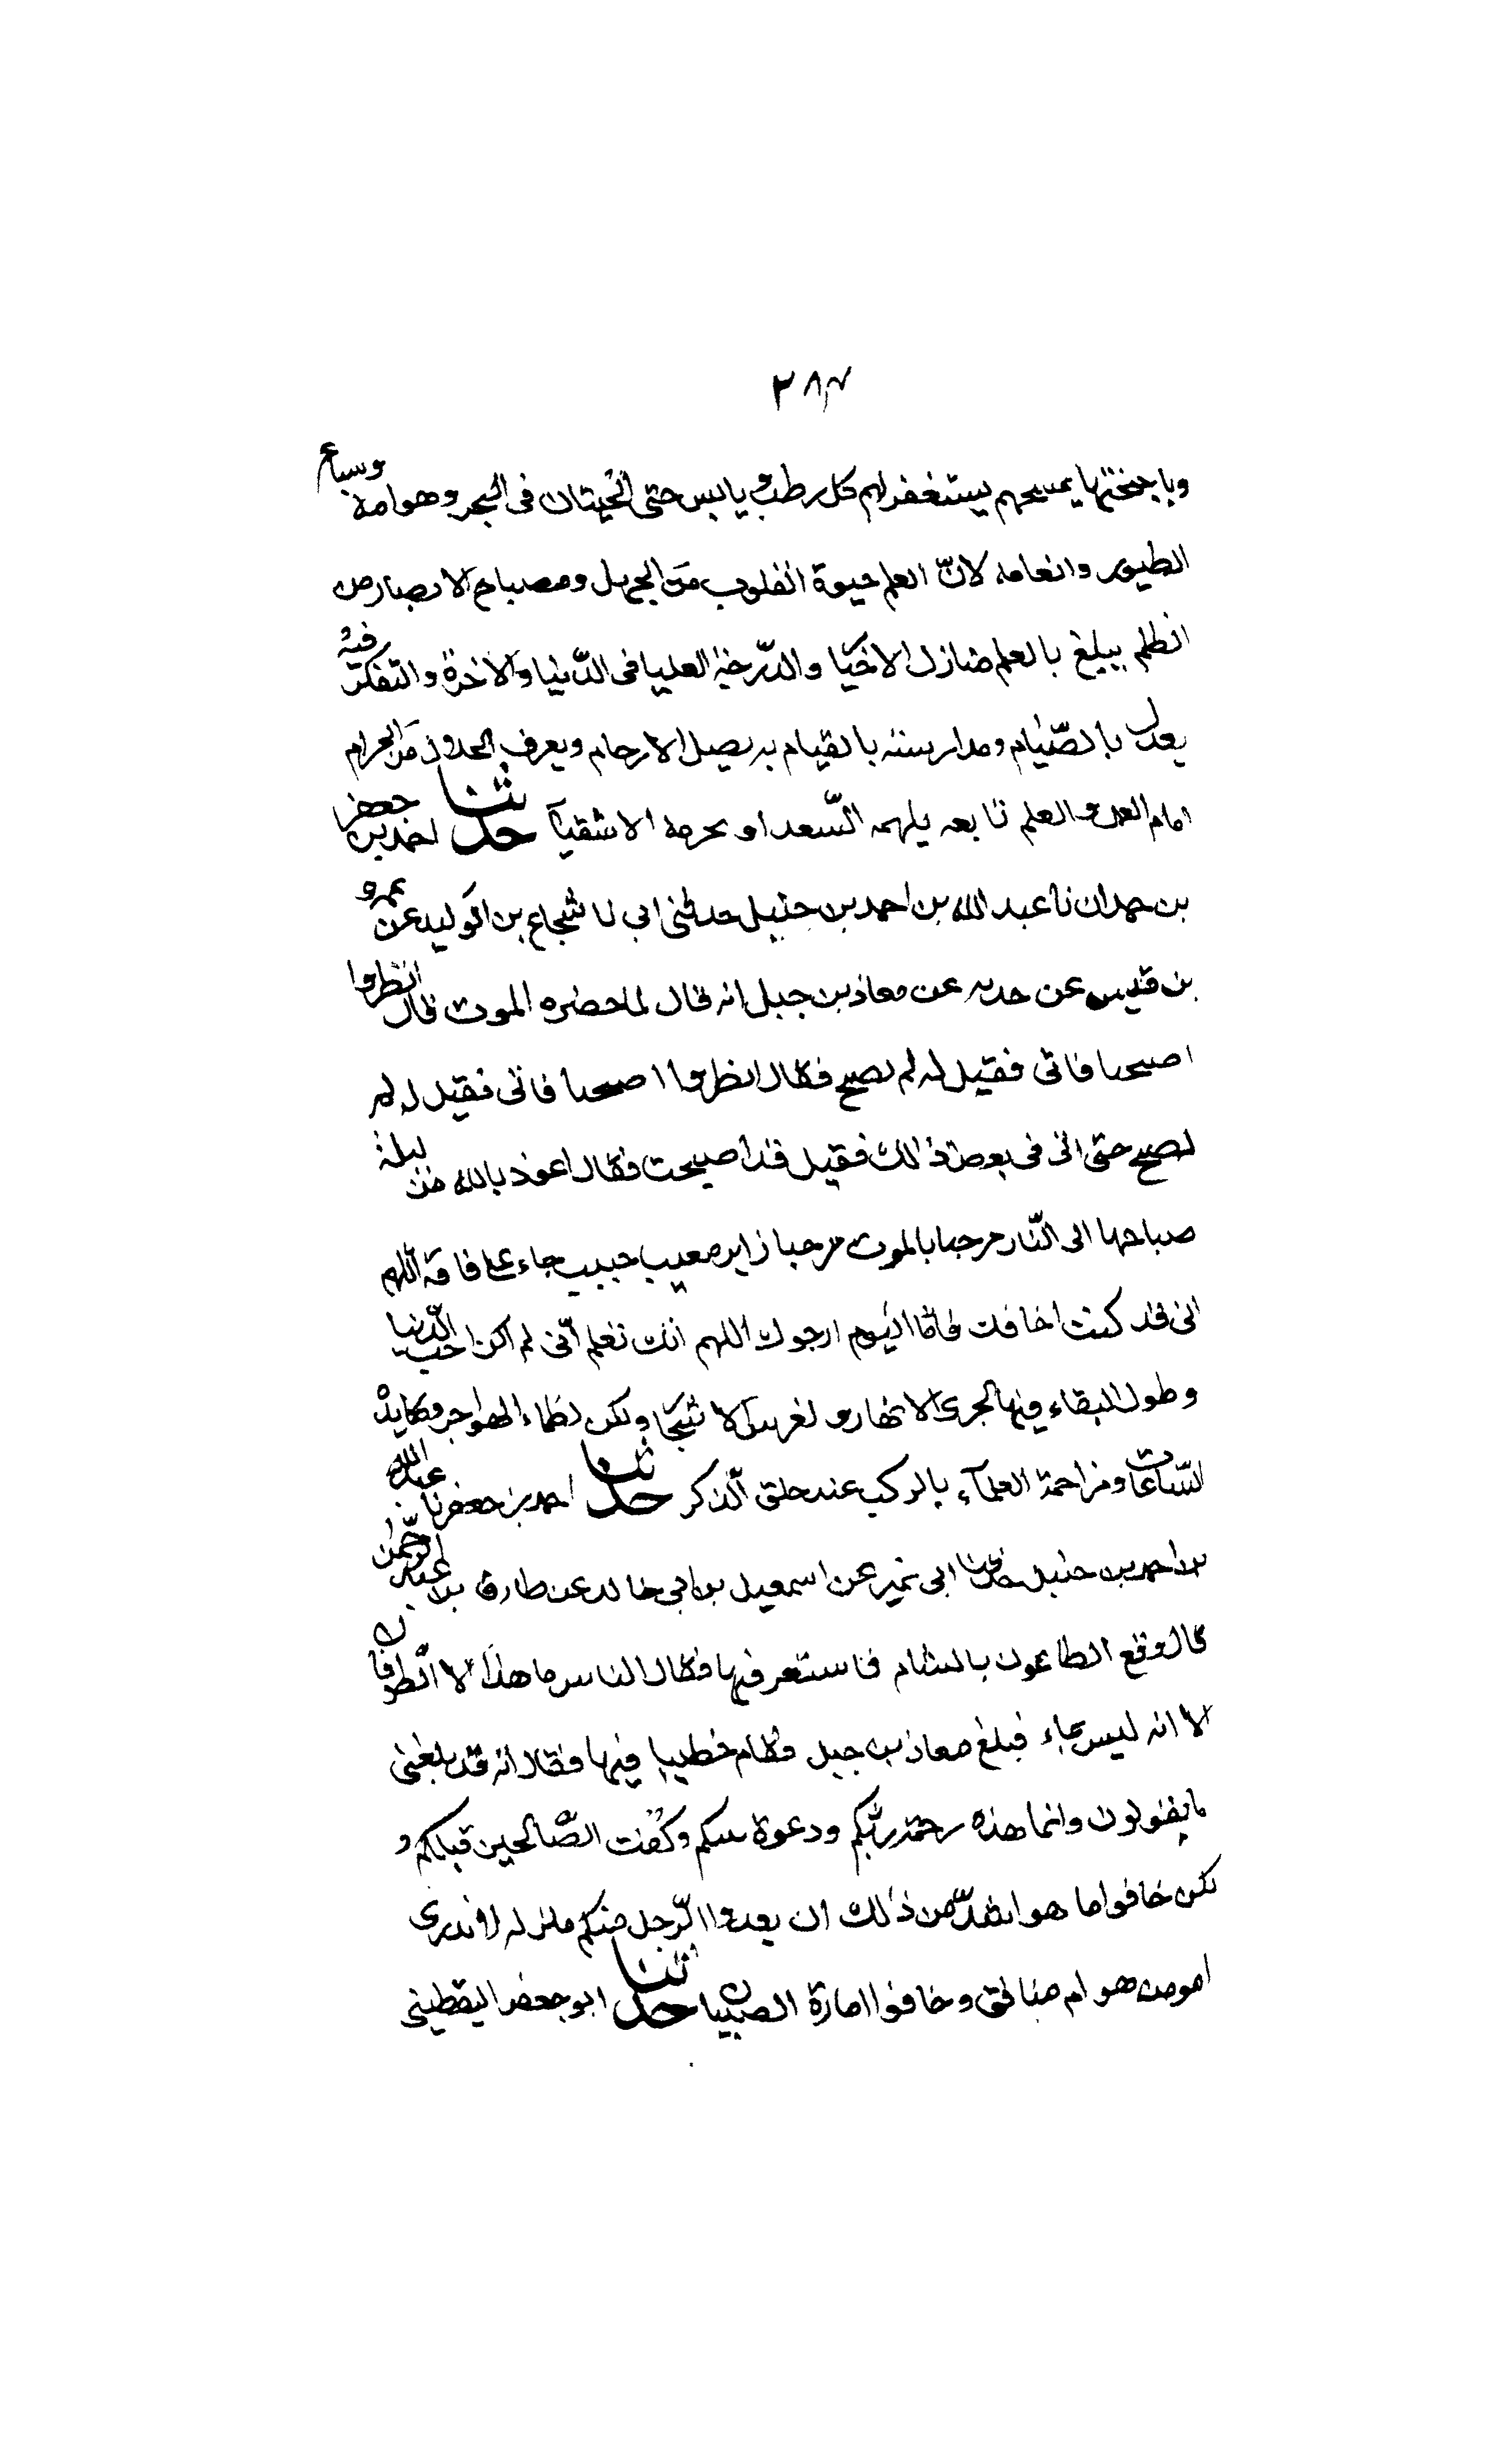 ٢٨٣
وباجنحتها يمسحهم يستغفر لهم كل رطب ويابس حتى الحيتان فى البحر وهوامه وسباع
الطيور وانعامه لانّ العلم حيوة القلوب من الجهل ومصباح الابصار من
الظلم يبلغ بالعلم منازل الاخيا والدّرجة العليا فى الدّنيا والاخرة والتفكر فيه
يعدل بالصّيام ومدارسته بالقيام به يصل الارحام ويعرف الحلال من الحرام
امام العمل والعلم تابعه يلهمه السّعدا و يحرمه الاشقيآ حدثنا احمد بن جعفر
بن حمدان نا عبد الله بن احمد بن حنبل حدثنى ابى نا شجاع بن الوليد عن عمرو
بن قيس عن حدثه عن معاذ بن جبل انه قال لما حضره الموت قال انظروا
اصبحنا فاتى فقيل له لم نصبح فقال انظروا اصبحنا فاتى فقيل له لم
نصبح حتى اتى فى بعض ذلك فقيل قد اصبحت فقال اعوذ بالله من ليلة
صباحها الى النّار مرحبا بالموت مرحبا زاير مغيب حبيب جاء على فاقة اللهم
انى قد كنت اخافك فانا اليوم ارجوك اللهم انك تعلم انّى لم اكن احب الدّنيا
وطول البقاء فيها لجرى الانهار و لغرس الاشجا ولكن لظماء الهواجر ومكايدة
السّاعات ومزاحمة العلمآء بالركب عند حلق الذكر حدثنا احمد بن جعفر نا عبد الله
بن احمد بن حنبل حدثنا ابى نمير عن اسمعيل بن ابى خالد عن طارق بن عبد الرحمن
قال وقع الطاعون بالشام فاستعر فيها فقال الناس ما هذا الا الطوفان
الا انه ليس بماء فبلغ معاذ بن جبل فقام خطيبا فيها فقال انه قد بلغنى
ما يقولون وانما هذه رحمة ربكم ودعوة نبيكم وكفت الصّالحين قبلكم و
لكن خافوا ما هو اشدّ من ذلك ان يغدوا الرّجل منكم منزله لا يدرى
امومن هو ام منافق و خافوا امارة الصبيان حدثنا ابو جعفر اليقطينى